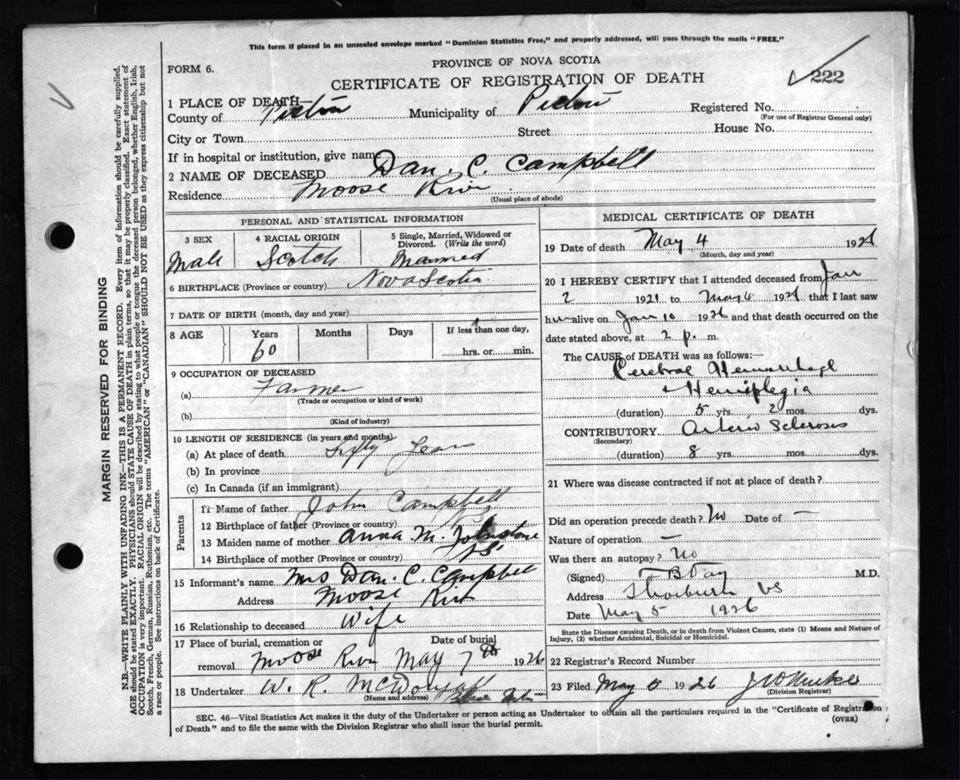 This form if placed in an unsealed envelope marked "Dominion Statistics Free," and properly addressed, will pass through the mails "FREE."
FORM 6.
PROVINCE OF NOVA SCOTIA
CERTIFICATE OF REGISTRATION OF DEATH
222
1 PLACE OF DEATH
County of Pictou Municipality of Pictou Registered No.
(For use of Registrar General only)
City or Town Street House No.
If in hospital or institution, give name
2 NAME OF DECEASED Dan. C. Campbell
Residence Moose River
(Usual place of abode)
MARGIN RESERVED FOR BINDING
N.B.—WRITE PLAINLY, WITH UNFADING INK—THIS IS A PERMANENT RECORD. Every item of information should be carefully supplied.
AGE should be stated EXACTLY. PHYSICIANS should STATE CAUSE OF DEATH in plain terms, so that it may be properly classified. Exact statement of
OCCUPATION is very important. RACIAL ORIGIN will be described by stating to what people or tongue the deceased person belonged, whether English, Irish,
Scotch, French, German, Russian, Ruthenian, etc. The terms "AMERICAN" or "CANADIAN" SHOULD NOT BE USED as they express citizenship but not
a race or people. See instructions on back of Certificate.
PERSONAL AND STATISTICAL INFORMATION
3 SEX
Male
4 RACIAL ORIGIN
Scotch
5 Single, Married, Widowed or
Divorced. (Write the word)
Married
6 BIRTHPLACE (Province or country) Nova Scotia
7 DATE OF BIRTH (month, day and year)
8 AGE Years Months Days If less than one day,
60 hrs. or min.
9 OCCUPATION OF DECEASED
(a) Farmer
(Trade or occupation or kind of work)
(b)
(Kind of industry)
10 LENGTH OF RESIDENCE (in years and months)
(a) At place of death Sixty Years
(b) In province
(c) In Canada (if an immigrant)
Parents
11 Name of father John Campbell
12 Birthplace of father (Province or country)
13 Maiden name of mother Anna M. Johnstone
14 Birthplace of mother (Province or country) NS
15 Informant's name Mrs Dan. C. Campbell
Address Moose River
16 Relationship to deceased Wife
17 Place of burial, cremation or Date of burial
removal Moose River May 7th 1926
18 Undertaker W. R.
(Name and address)
MEDICAL CERTIFICATE OF DEATH
19 Date of death May 4 1926
(Month, day and year)
20 I HEREBY CERTIFY that I attended deceased from Jan
2 1921 to May 4 1926 that I last saw
him alive on Jan 10 1926 and that death occurred on the
date stated above, at 2 p. m.
The CAUSE of DEATH was as follows:—
Cerebral Hemorrhage
+ Hemiplegia
(duration) 5 yrs. 2 mos. dys.
CONTRIBUTORY Arterio Sclerosis
(Secondary)
(duration) 8 yrs. mos. dys.
21 Where was disease contracted if not at place of death?
Did an operation precede death? No Date of —
Nature of operation —
Was there an autopsy? No
(Signed) M.D.
Address Thorburn NS
Date May 5 1926
State the Disease causing Death, or in death from Violent Causes, state (1) Means and Nature of
Injury, (2) whether Accidental, Suicidal or Homicidal.
22 Registrar's Record Number
23 Filed May 5 1926
(Division Registrar)
SEC. 46—Vital Statistics Act makes it the duty of the Undertaker or person acting as Undertaker to obtain all the particulars required in the "Certificate of Registration
of Death" and to file the same with the Division Registrar who shall issue the burial permit.
(OVER)